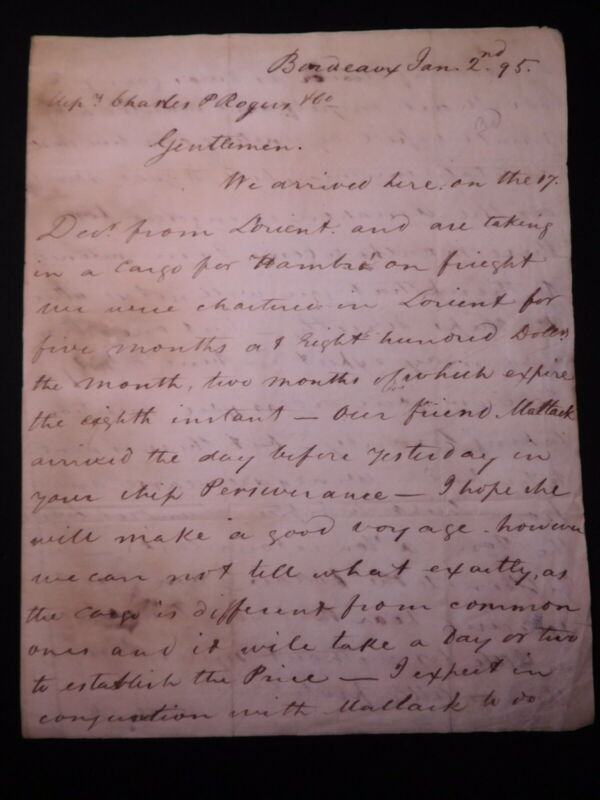 Bordeaux Jan. 2nd 95.
Charles P Rogers & Co
Gentlemen.
We arrived here, on the 17.
Decr. from Lorient. and are taking
in a Cargo for Hambro' on frieght
we were chartered in Lorient for
five months at Eight hundred Dollrs
the month, two months of which expire
the eighth instant — Our friend Matlack
arrived the day before yesterday in
your ship Perseverance — I hope she
will make a good voyage. however
we can not tell what exactly, as
the Cargo is different from common
ones and it will take a Day or two
to establish the Price — I expect in
conjunction with Matlack to do